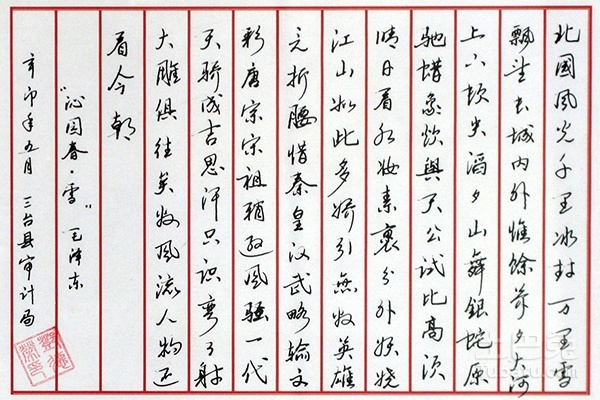 北國風光千里冰封万里雪
飘望长城内外惟馀莽々大河
上下顿失滔々山舞銀蛇原
驰蜡象欲與天公试比高须
晴日看红妆素裹分外妖娆
江山如此多娇引無数英雄
竞折腰惜秦皇汉武略输文
彩唐宗宋祖稍逊风骚一代
天骄成吉思汗只识弯弓射
大雕俱往矣数風流人物还
看今朝
"沁园春·雪" 毛泽东
辛卯年五月 三台县审计局